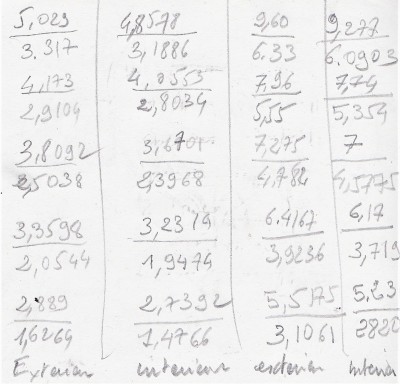 5,023 4,8578 9,60 9,277
3.317 3,1886 6.33 6.0903
4,173 4,0553 7,96 7,74
2,9104 2,8034 5,55 5,354
3,8092 3,6701 7,275 7
2,5038 2,3968 4,784 4,5775
3,3598 3,2314 6.4167 6,17
2,0544 1,9474 3,9236 3,719
2,889 2,7392 5,5175 5,23
1,6264 1,4766 3,1061 2820
Exterior interior exterior Interior